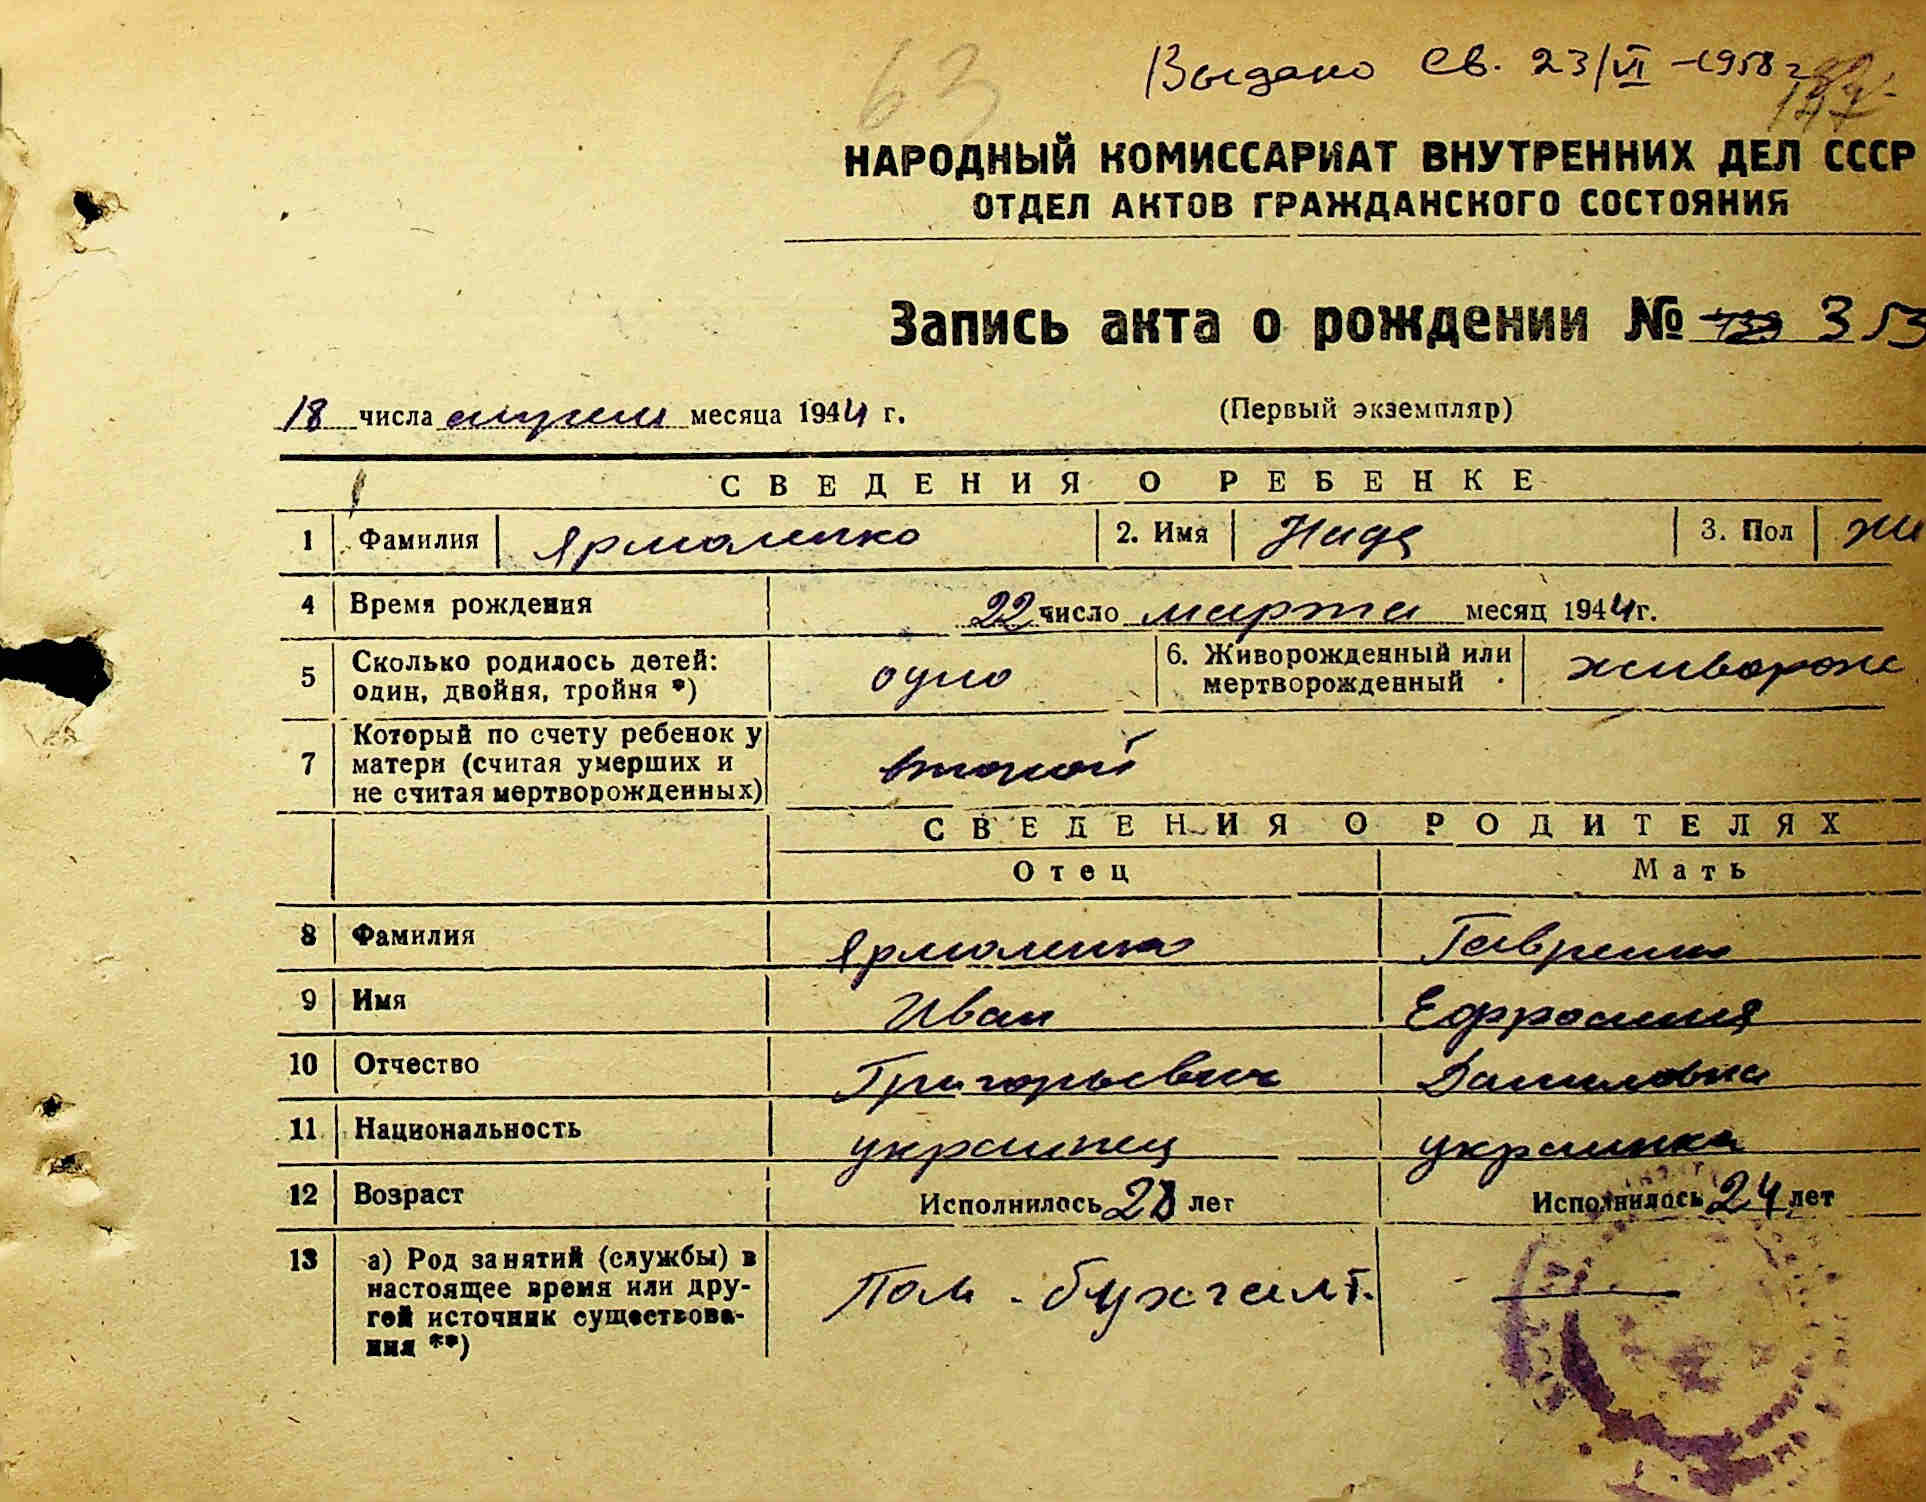 63
Выдано св. 23/VI - 1958 г
НАРОДНЫЙ КОМИССАРИАТ ВНУТРЕННИХ ДЕЛ СССР
ОТДЕЛ АКТОВ ГРАЖДАНСКОГО СОСТОЯНИЯ
Запись акта о рождении № 353
18 числа апреля месяца 1944 г. (Первый экземпляр)
СВЕДЕНИЯ О РЕБЕНКЕ
1 Фамилия Ярмоленко 2. Имя Нида 3. Пол же
4 Время рождения 22 число марта месяц 1944 г.
5 Сколько родилось детей: один, двойня, тройня *) одно 6. Живорожденный или мертворожденный живорож
7 Который по счету ребенок у матери (считая умерших и не считая мертворожденных) второй
СВЕДЕНИЯ О РОДИТЕЛЯХ
Отец Мать
8 Фамилия Ярмоленко
9 Имя Иван Ефросиния
10 Отчество Григорьевич Даниловна
11 Национальность украинец украинка
12 Возраст Исполнилось 28 лет Исполнилось 24 лет
13 а) Род занятий (службы) в
настоящее время или дру-
гой источник существова-
ния **) Пом. бухгалт. —